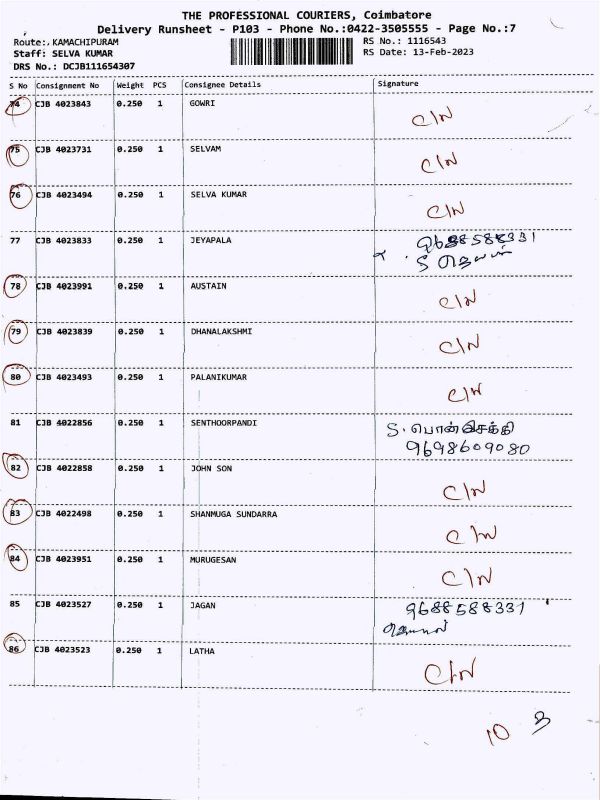 THE PROFESSIONAL COURIERS, Coimbatore
Delivery Runsheet - P103 - Phone No.:0422-3505555 - Page No.:7
Route: KAMACHIPURAM
RS No.: 1116543
Staff: SELVA KUMAR
RS Date: 13-Feb-2023
DRS No.: DCJB111654307
S No Consignment No Weight PCS Consignee Details Signature
74 CJB 4023843 0.250 1 GOWRI C/N
75 CJB 4023731 0.250 1 SELVAM C/N
76 CJB 4023494 0.250 1 SELVA KUMAR C/N
77 CJB 4023833 0.250 1 JEYAPALA 9688588331
78 CJB 4023991 0.250 1 AUSTAIN C/N
79 CJB 4023839 0.250 1 DHANALAKSHMI C/N
80 CJB 4023493 0.250 1 PALANIKUMAR C/N
81 CJB 4022856 0.250 1 SENTHOORPANDI S.
9698609080
82 CJB 4022858 0.250 1 JOHN SON C/N
83 CJB 4022498 0.250 1 SHANMUGA SUNDARRA C/N
84 CJB 4023951 0.250 1 MURUGESAN C/N
85 CJB 4023527 0.250 1 JAGAN 9688588331
86 CJB 4023523 0.250 1 LATHA C/N
10 3